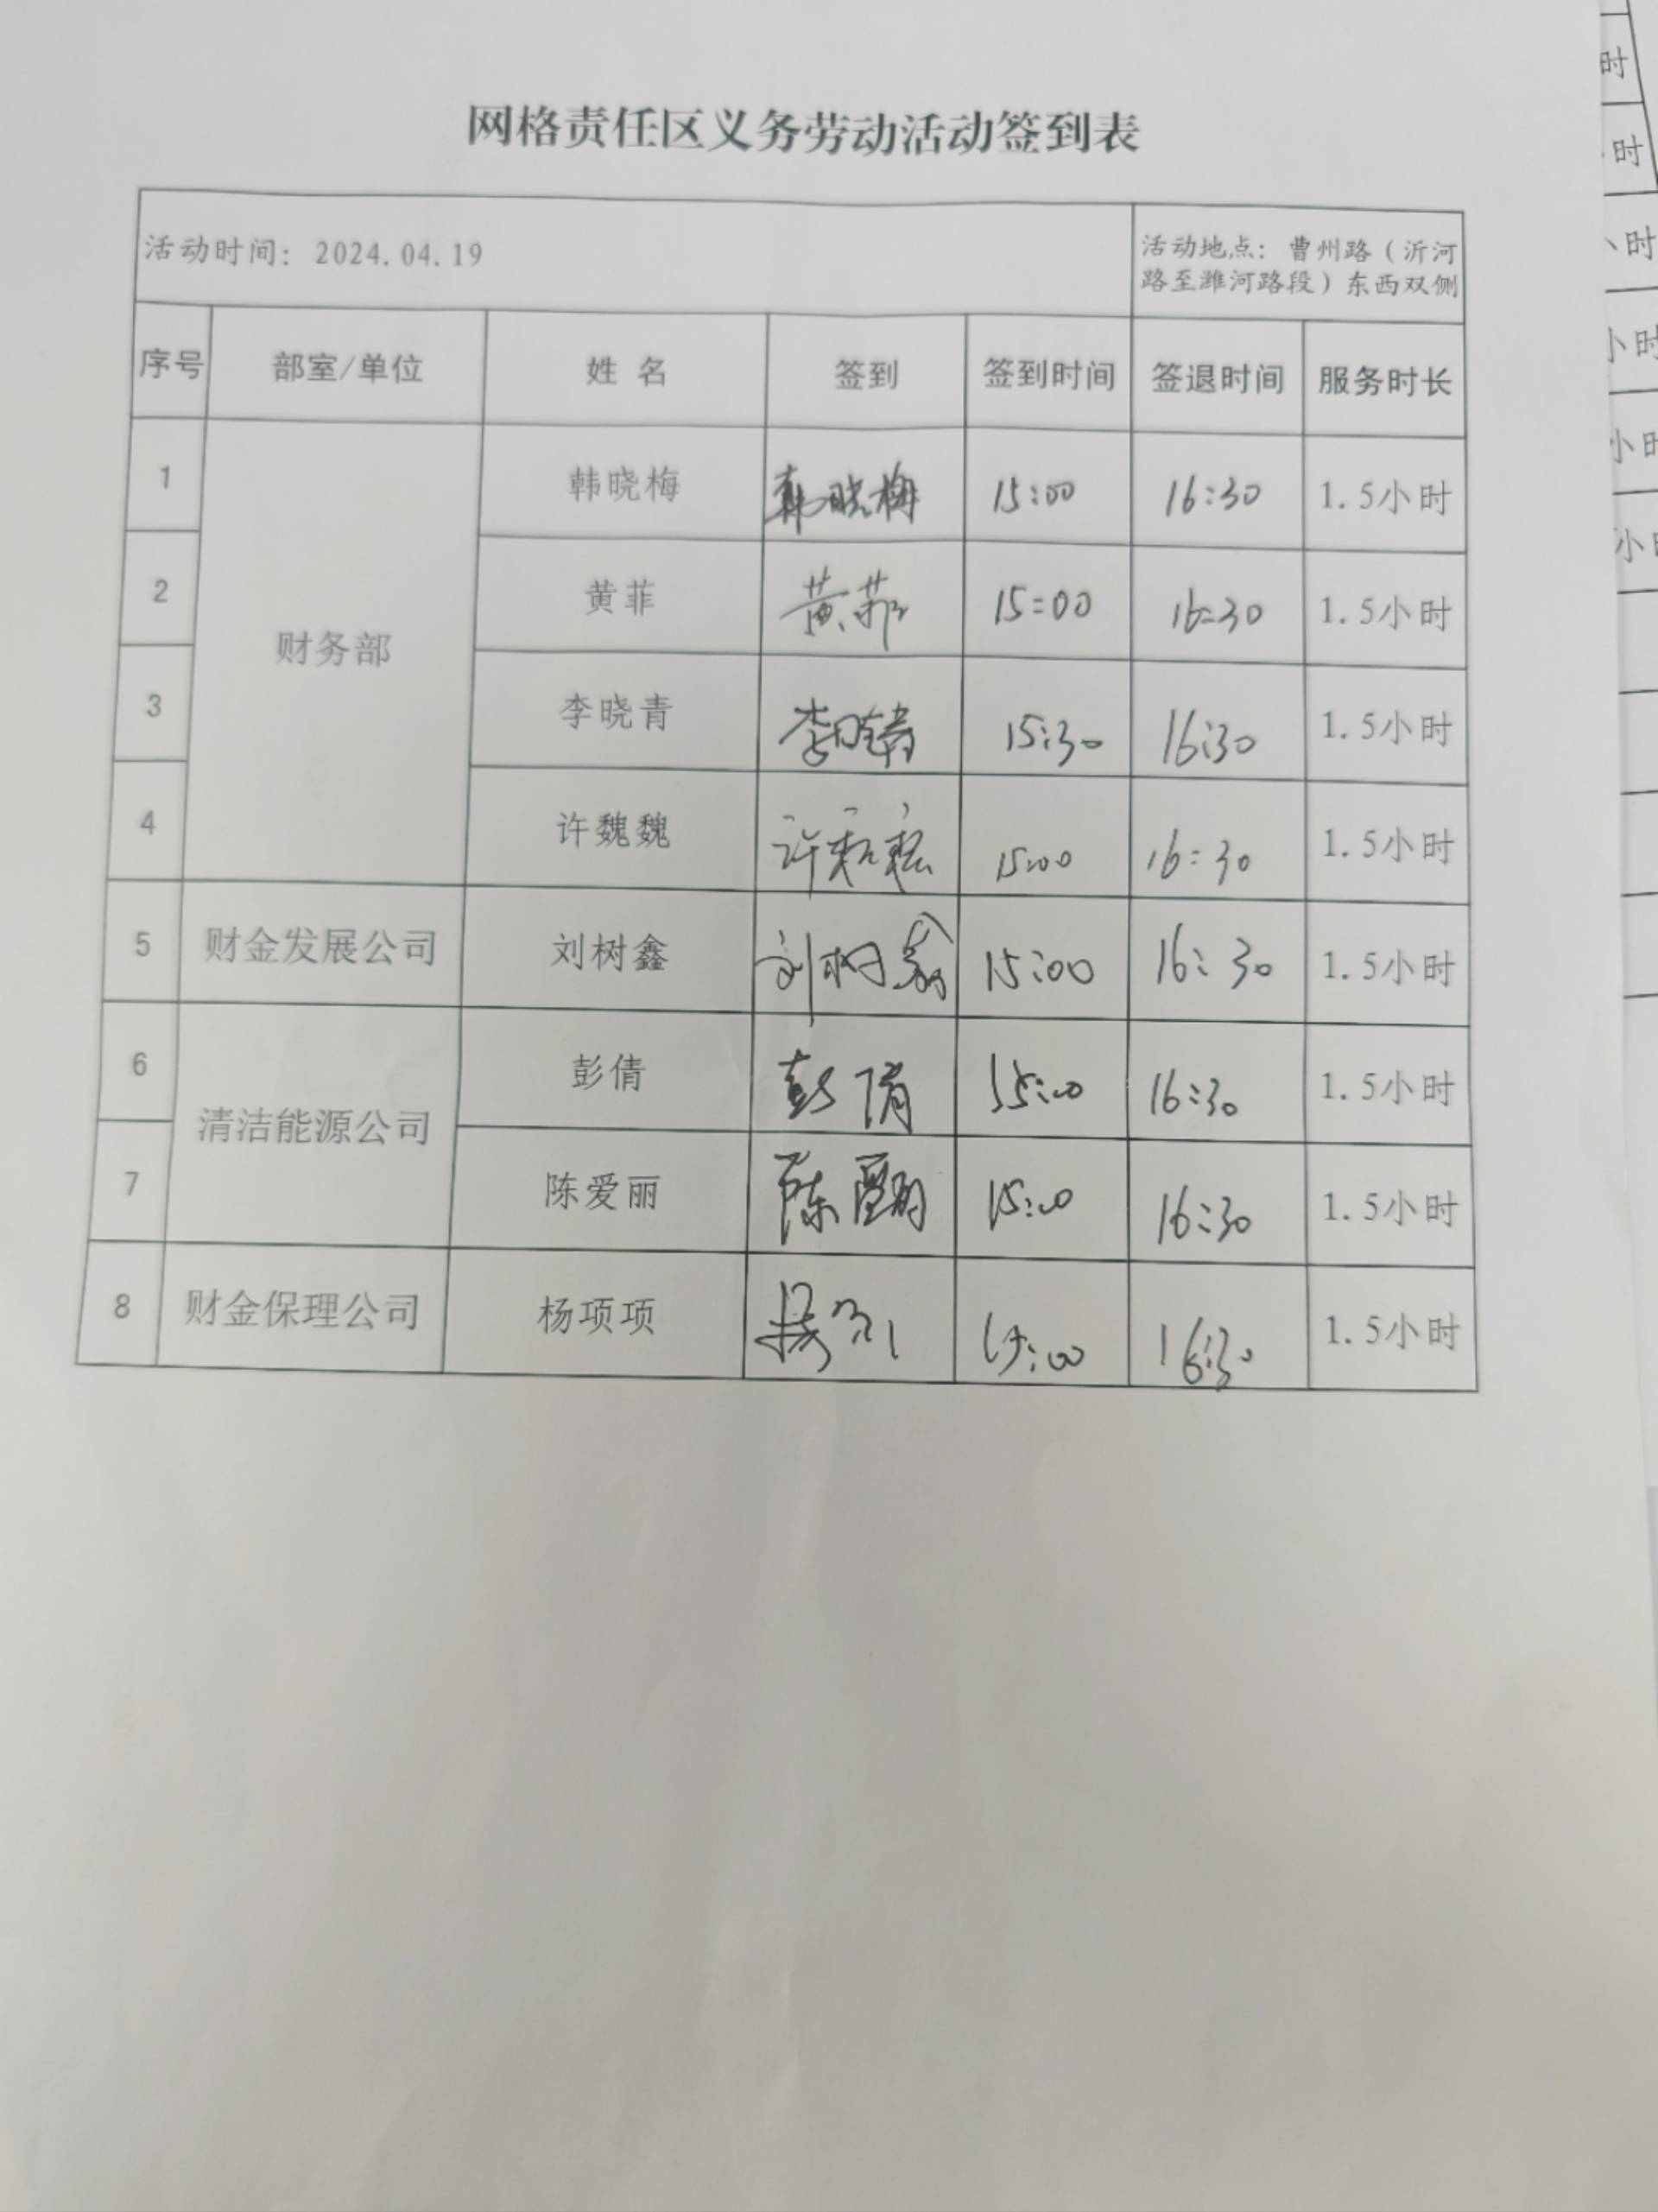 网格责任区义务劳动活动签到表
活动时间：2024.04.19
活动地点：曹州路（沂河
路至潍河路段）东西双侧
序号 部室/单位 姓 名 签到 签到时间 签退时间 服务时长
1 财务部 韩晓梅 韩晓梅 15:00 16:30 1.5小时
2 黄菲 黄菲 15:00 16:30 1.5小时
3 李晓青 李晓青 15:30 16:30 1.5小时
4 许魏魏 许魏魏 15:00 16:30 1.5小时
5 财金发展公司 刘树鑫 刘树鑫 15:00 16:30 1.5小时
6 清洁能源公司 彭倩 彭倩 15:00 16:30 1.5小时
7 陈爱丽 陈爱丽 15:00 16:30 1.5小时
8 财金保理公司 杨项项 杨项项 15:00 16:30 1.5小时
时
时
小时
小时
小时
小时